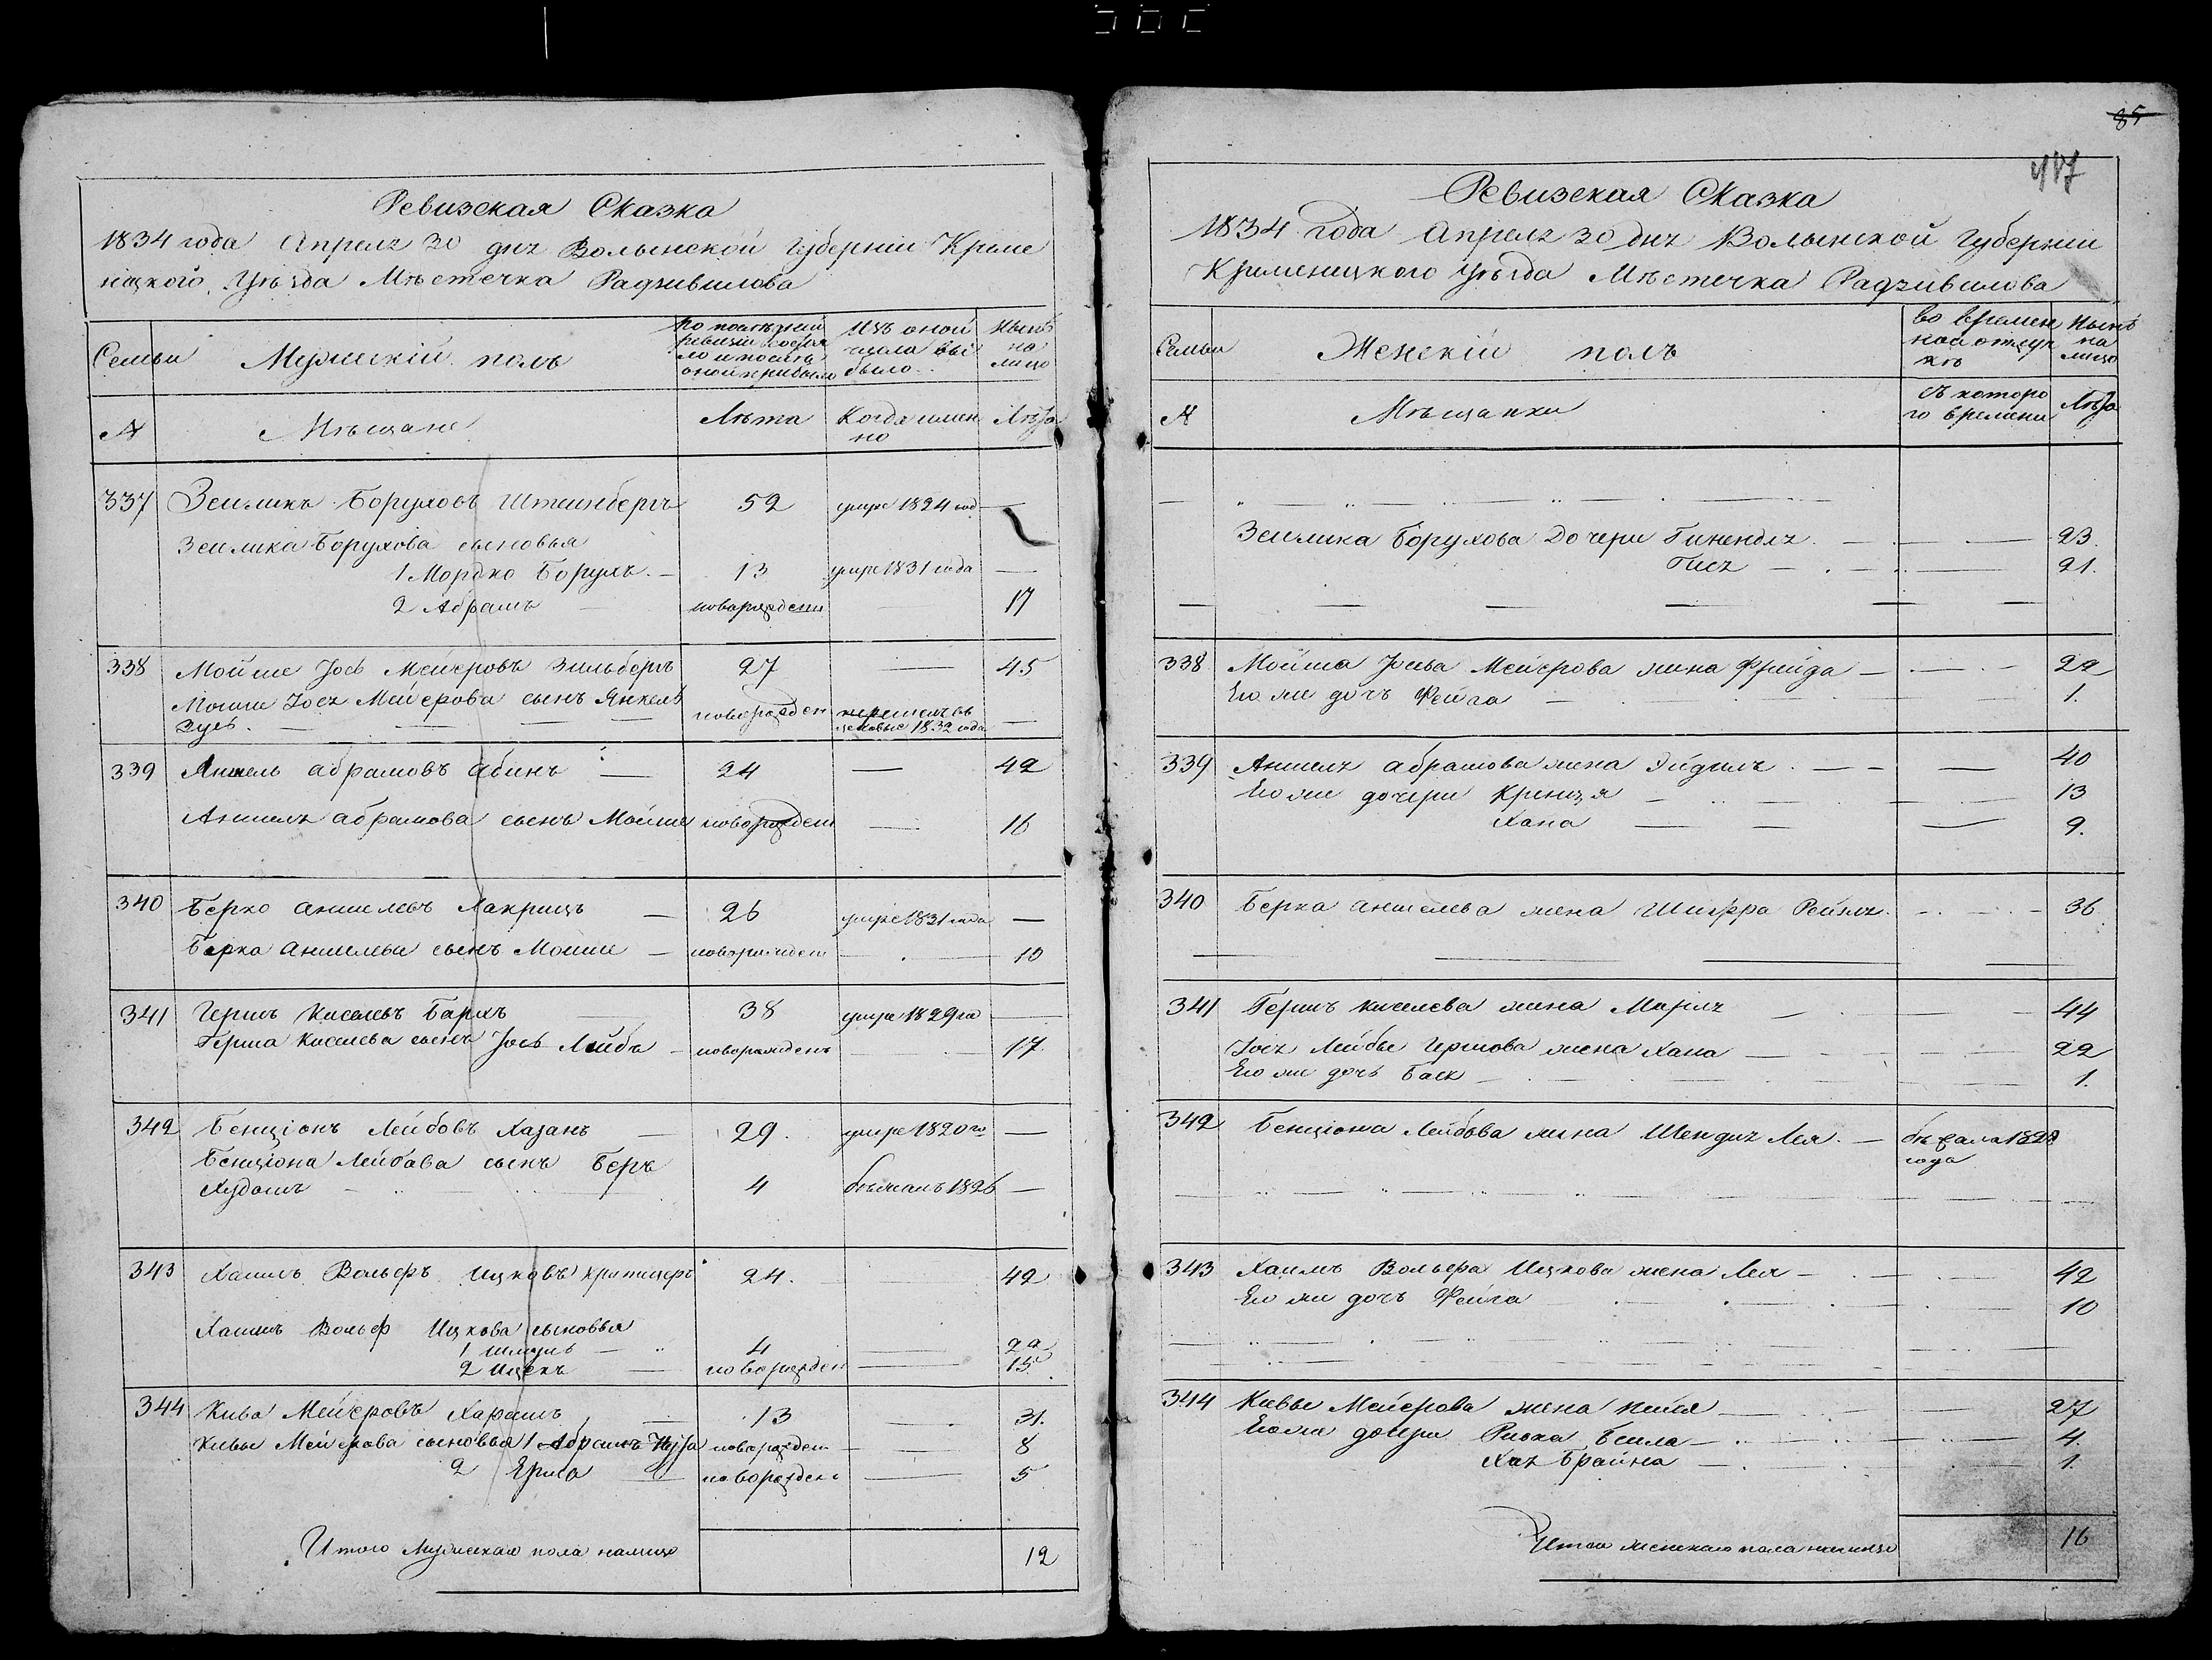 Ревизская Сказка
1834 года Апреля 30 дня Волынской Губернiи Креме
нецкого Уѣзда Мѣстечка Радзивилова
Семьи
Мужескiй полъ
по последней
ревизiи состоя
ло и после
оной прибыло
Изъ оной
числа вы
было
Нынѣ
на
лицо
№
Мѣщане
Лѣта
Когда имен
но
Лѣта
337 Зейликъ Боруховъ Штейнбергъ 52 умре 1824 год —
Зейлика Борухова сыновья
1 Мордко Борухъ — 13 умре 1831 года —
2 Абрамъ — новорожден 17
338 Мойше Iось Мейеровъ Зильбергъ 27 — 45
Мошше Iося Мейерова сынъ Янкель новорожден —
Зусь — 1832 года
339 Аншель Абрамовъ Абинъ — 24 — 42
Аншеля Абрамова сынъ Мойше новорожден — 16
340 Берко Аншелевъ Лакрицъ — 26 умре 1831 года —
Берка Аншелева сынъ Мойше — новорожден — 10
341 Гершъ Киселевъ Барихъ 38 умре 1829 го —
Герша Киселева сынъ Iось Лейба — новорожденъ — 17
342 Бенцiонъ Лейбовъ Хазанъ — 29. умре 1820 го —
Бенцiона Лейбова сынъ Беръ
Худошъ — 4 бѣжалъ 1826 —
343 Хаимъ Вольфъ Ицковъ 24. — 42
Хаимъ Вольф Ицкова сыновья
1 Шмуль — 4 — 22
2 Ицекъ — новорожден — 15.
344 Кива Мейеровъ Харашъ — 13 — 31.
Кивы Мейерова сыновья 1 Абрамъ Нута новорожден — 8
2 Ершо — новорожден — 5
Итого Мужескаго пола налицо 12
85
417
Ревизская Сказка
1834 года Апреля 30 дня Волынской Губернiи
Кременецкого Уѣзда Мѣстечка Радзивилова
Семьи
Женскiй полъ
во времен
ной отлуч
кѣ
Нынѣ
на
лицо
№
Мѣщанки
съ которо
го времени
Лѣта
Зейлика Борухова дочери Гинендля — 23.
Гися — 21.
338 Мойша Iосева Мейерова жена Фрейда — 22
Его же дочь Фейга — 1.
339 Аншеля Абрамова жена Эйдиль — 40
Его же дочери Кренця — 13
Хана — 9.
340 Берка Аншелева жена Шифра Рейзля — 36
341 Гершъ Киселева жена Марiя — 44
Iося Лейбы Гершова жена Хана — 22
Его же дочь Бася — 1.
342 Бенцiона Лейбова жена Шендля Лея. — бѣжала 1828
года
343 Хаимъ Вольфа Ицкова жена Лея — 42
Его же дочь Фейга — 10
344 Кивы Мейерова жена Нейся — 27
Его же дочери Ривка Бейла — 4.
Хая Брайна — 1.
Итого женскаго пола налицо 16